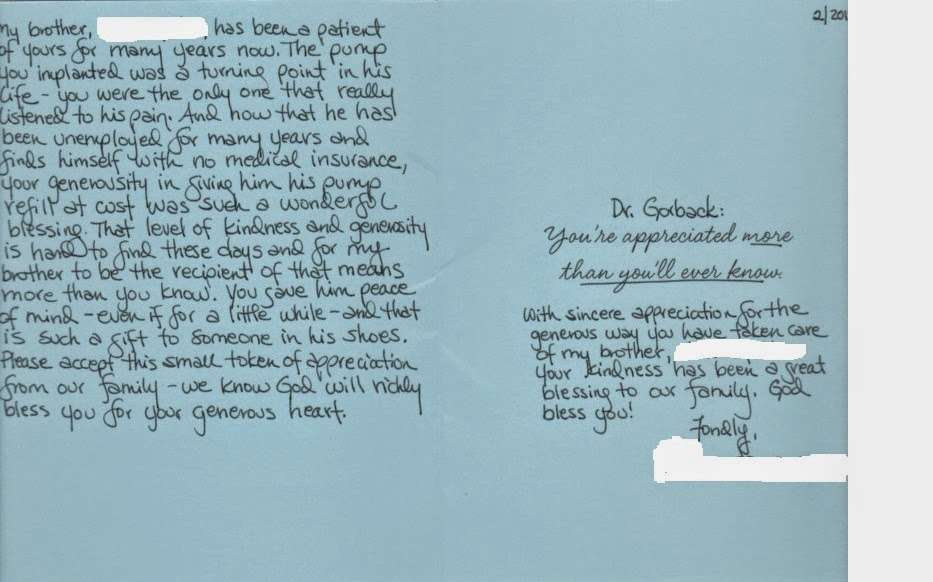 My brother, , has been a patient
of yours for many years now. The pump
you inplanted was a turning point in his
life - you were the only one that really
listened to his pain. And now that he has
been unemployed for many years and
finds himself with no medical insurance,
your generousity in giving him his pump
refill at cost was such a wonderful
blessing. That level of kindness and generosity
is hard to find these days and for my
brother to be the recipient of that means
more than you know. You gave him peace
of mind - even if for a little while - and that
is such a gift to someone in his shoes.
Please accept this small token of appreciation
from our family - we know God will richly
bless you for your generous heart.
2/201
Dr. Gorback:
You're appreciated more
than you'll ever know.
With sincere appreciation for the
generous way you have taken care
of my brother,
Your kindness has been a great
blessing to our family. God
bless you!
Fondly,